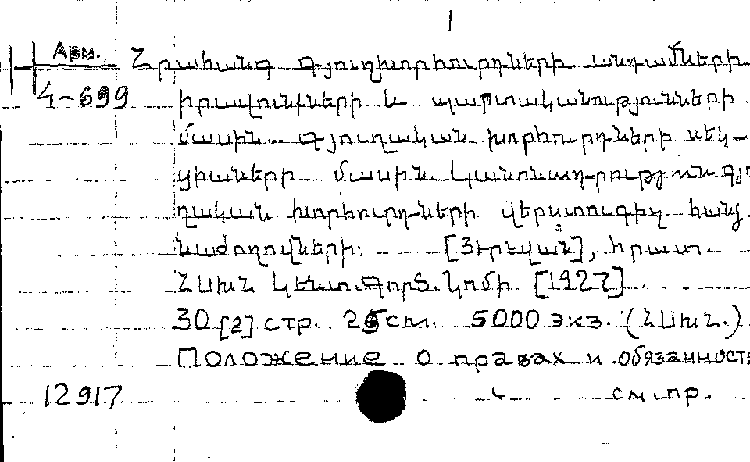 1
Арм. Հրահանգ գյուղխորհուրդների անդամների
4-699 իրավունքների և պարտականությունների
մասին. Գյուղական խորհուրդների սեկ-
ցիաների մասին. Կանոնադրություն գյու
ղական խորհուրդների վերստուգիչ հանձ
նաժողովների. [Յերևան], հրատ.
ՀՍԽՀ Կենտ.Գործ.Կոմի. [1927]
30 [2] стр. 25 см. 5000 экз. (ՀՍԽՀ.)
Положение о правах и обязанностя
12917 см.пр.